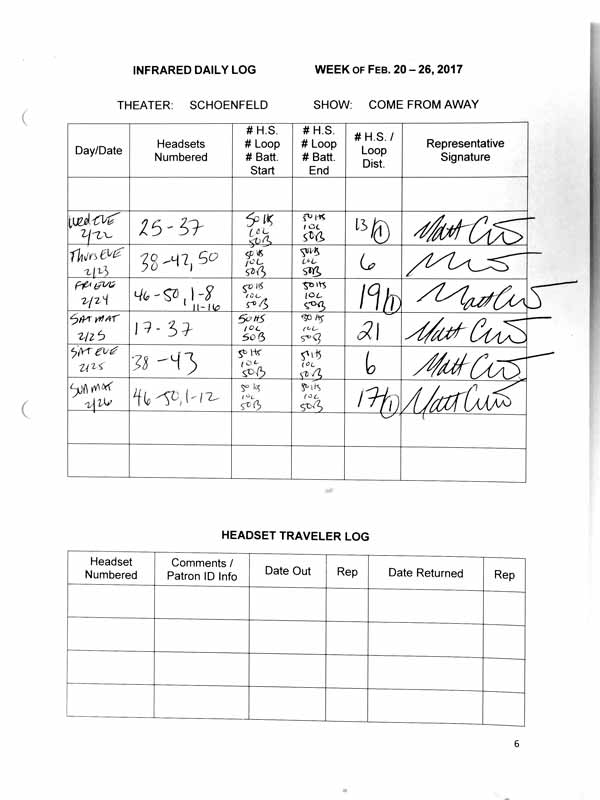 INFRARED DAILY LOG WEEK OF FEB. 20 – 26, 2017
THEATER: SCHOENFELD SHOW: COME FROM AWAY
Day/Date Headsets Numbered # H.S. # Loop # Batt. Start # H.S. # Loop # Batt. End # H.S. / Loop Dist. Representative Signature
Wed EVE 2/22 25-37 50 HS 10L 50B 50 HS 10L 50B 13/1 Matt
Thurs EVE 2/23 38-42, 50 50 HS 10L 50B 50 HS 10L 50B 6
FRI EVE 2/24 46-50, 1-8 11-16 50 HS 10L 50B 50 HS 10L 50B 19/1 Matt
SAT MAT 2/25 17-37 50 HS 10L 50B 50 HS 10L 50B 21 Matt
SAT EVE 2/25 38-43 50 HS 10L 50B 50 HS 10L 50B 6 Matt
SUN MAT 2/26 46-50, 1-12 50 HS 10L 50B 50 HS 10L 50B 17/1 Matt
HEADSET TRAVELER LOG
Headset Numbered Comments / Patron ID Info Date Out Rep Date Returned Rep
6